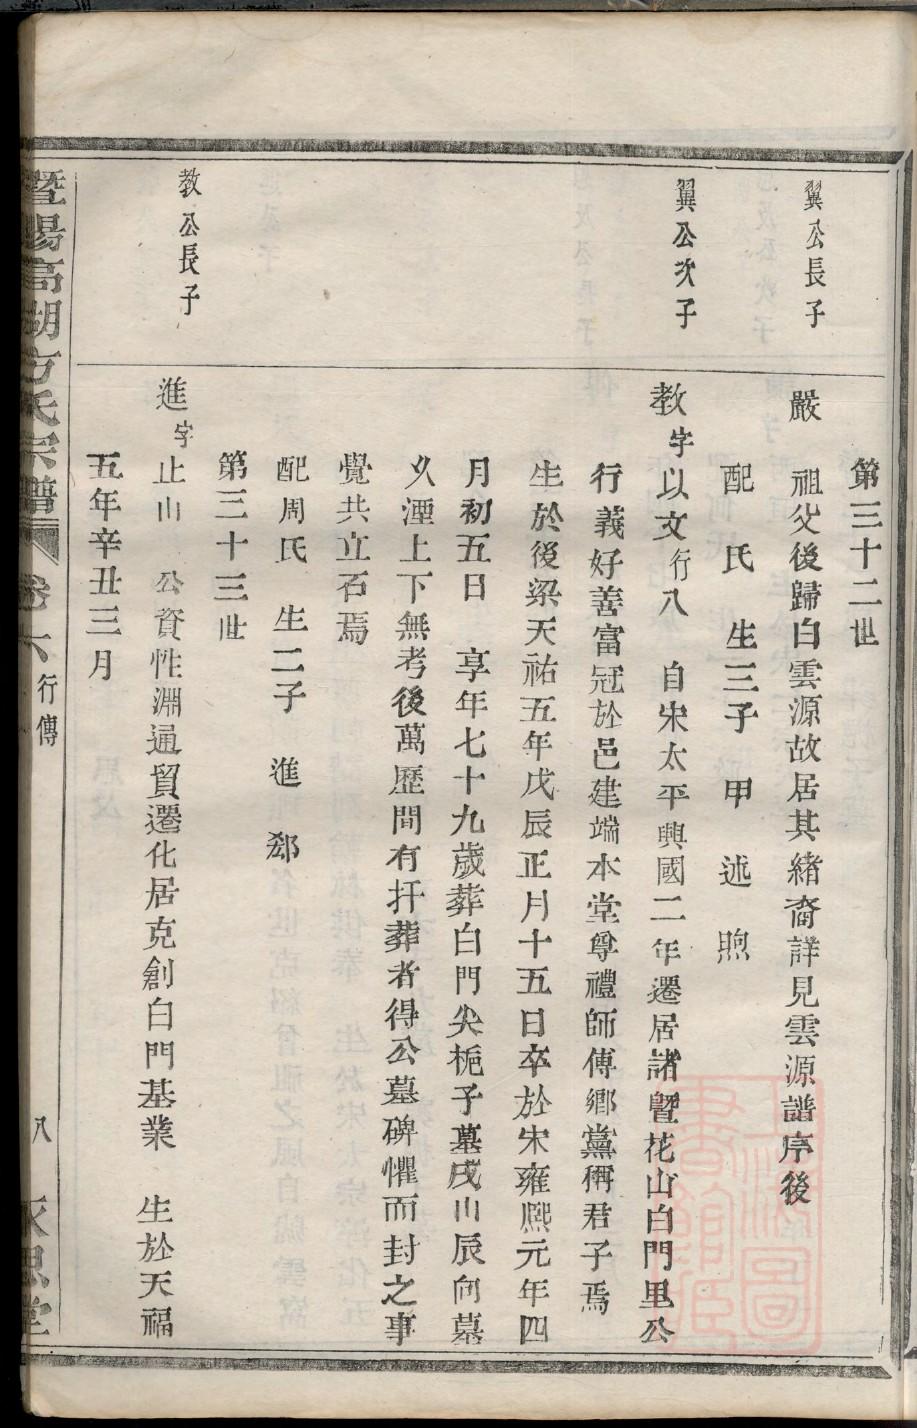 第三十二世
翼公長子
嚴 祖父後歸白雲源故居其緒裔詳見雲源譜序後
配 氏 生三子 甲 述 煦
翼公次子
教字以文行八 自宋太平興國二年遷居諸曁花山白門里公
行義好善富冠於邑建端本堂尊禮師傅鄉黨稱君子焉
生於後梁天祐五年戊辰正月十五日卒於宋雍熙元年四
月初五日 享年七十九歲葬白門尖栀子墓戌山辰向墓
乆湮上下無考後萬歷間有扞葬者得公墓碑懼而封之事
覺共立石焉
配周氏 生二子 進 郄
第三十三世
教公長子
進字止山 公資性淵通貿遷化居克創白門基業 生於天福
五年辛丑三月
暨陽高湖方氏宗譜 卷六 行傳 八 永思堂